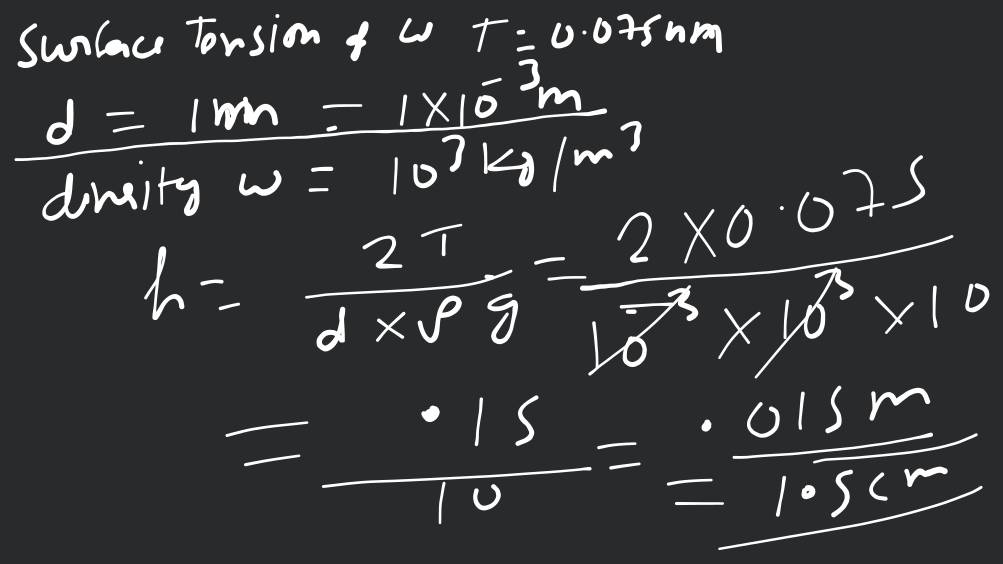 Surface Tension of w T = 0.075 nm
d = 1 mm = 1 × 10⁻³ m
density w = 10³ kg/m³
h = 2T / d × ρ g = 2 × 0.075 / 10⁻³ × 10³ × 10
= .15 / 10 = .015 m
= 1.5 cm